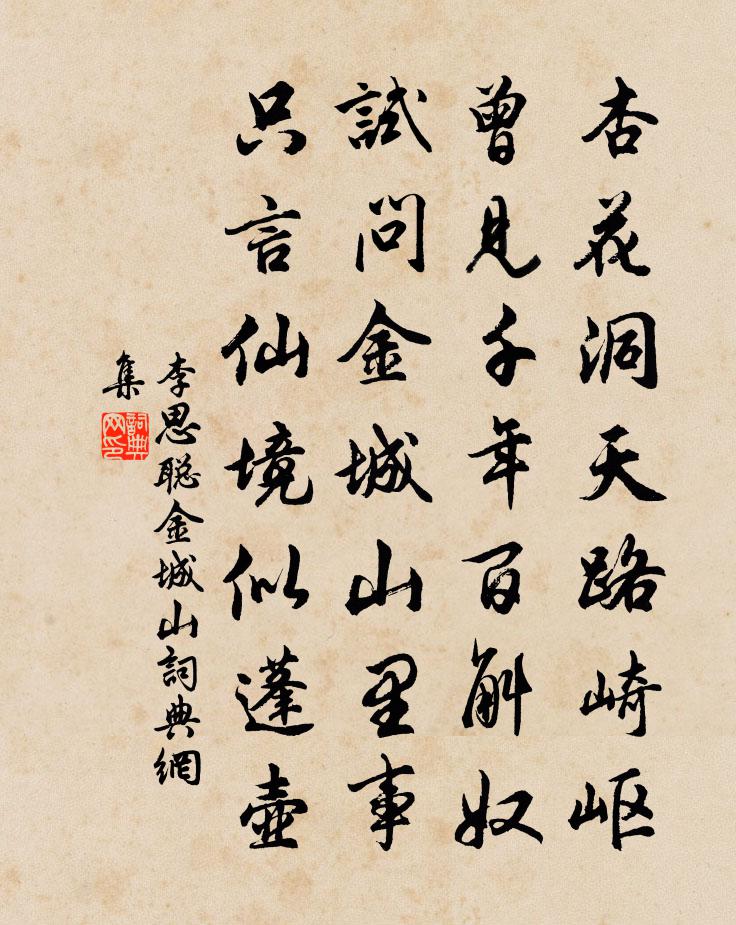 杏花洞天路崎岖
曾見千年百斛奴
試問金城山里事
只言仙境似蓬壺
李思聪金城山詞典網
集
詞典
网印